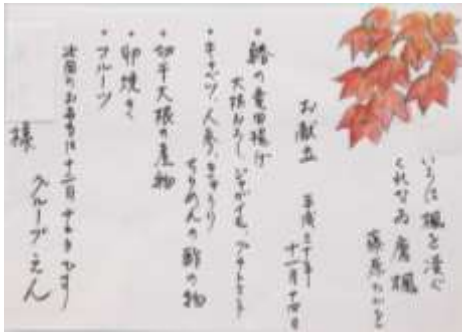 いろは楓を凌ぐ
くれなゐ唐楓
藤原
お献立 平成三十年
十一月十四日
・鯵の竜田揚げ
大根おろし、じゃがいも、プチトマト
・キャベツ、人参、きゅうり
ちりめんの酢の物
・切干大根の煮物
・卵焼き
・フルーツ
次回のお弁当は十二月
グループえん
様